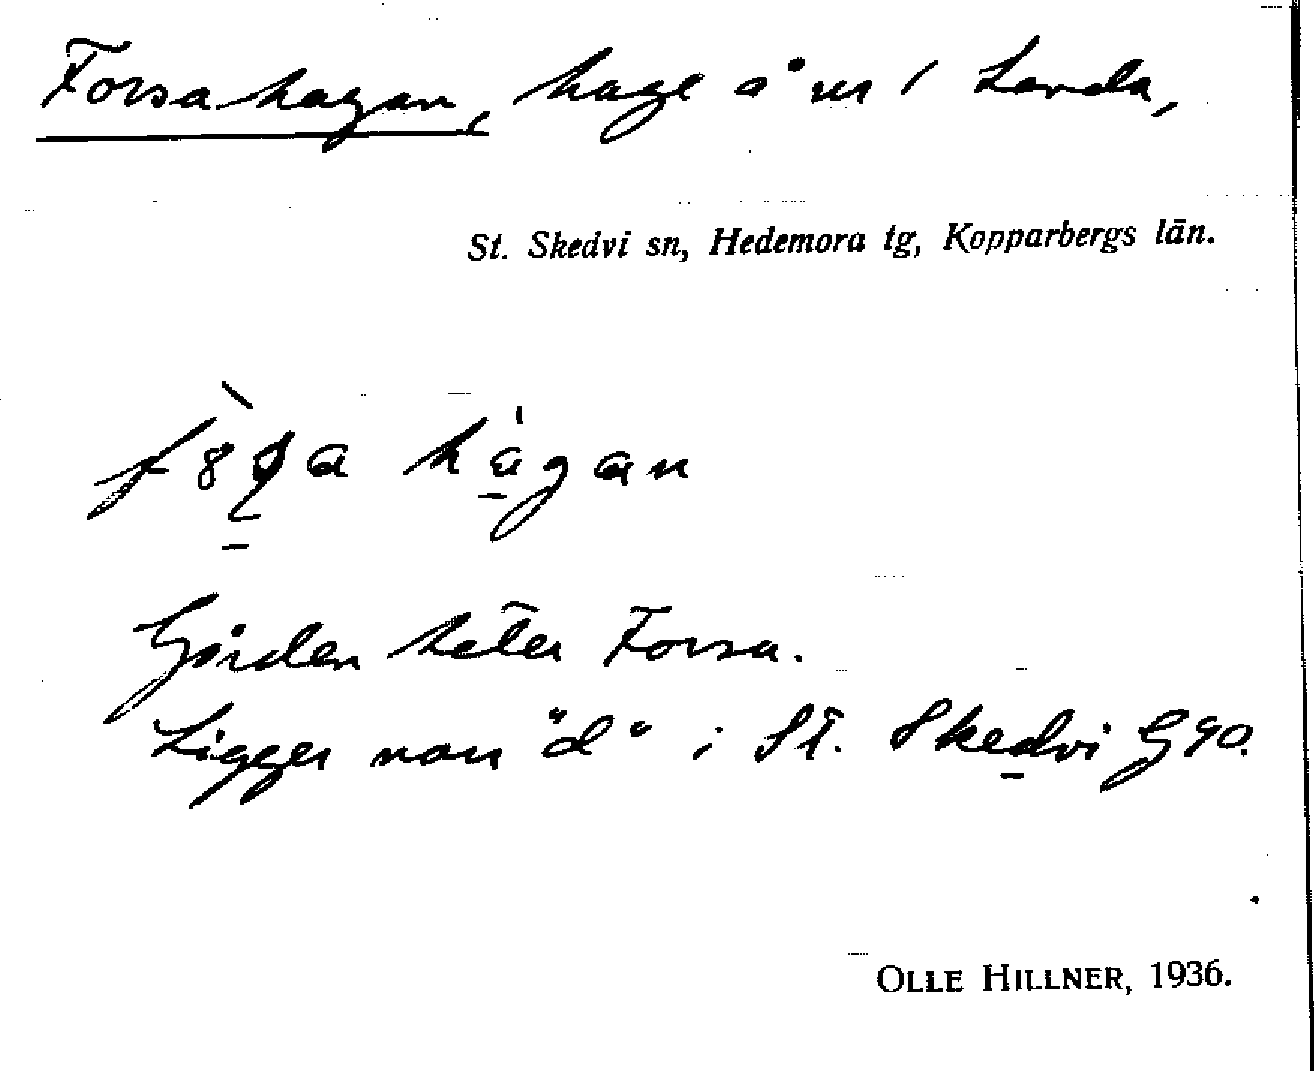 Forsahagan, hage å nr 1 Landa,
St. Skedvi sn, Hedemora tg, Kopparbergs län.
hagan
Gården heter Forsa.
Ligger norr "d" i St. Skedvi G90.
OLLE HILLNER, 1936.